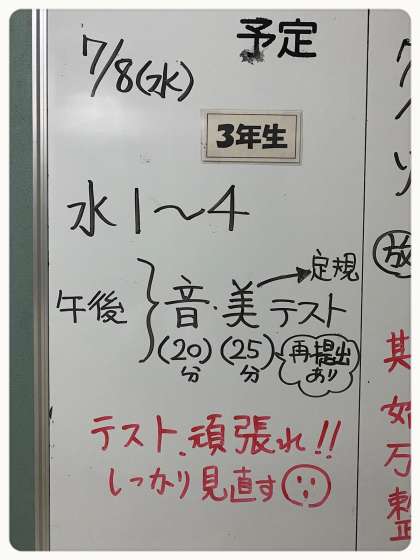 予定
7/8(水)
3年生
水1〜4
定規
午後}音・美テスト
(20分)(25分)再提出あり
テスト、頑張れ!!
しっかり見直す
放